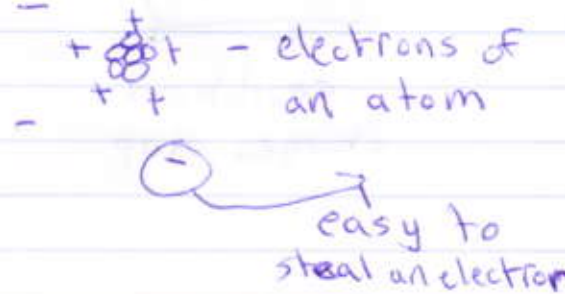 - electrons of
an atom
easy to
steal an electron